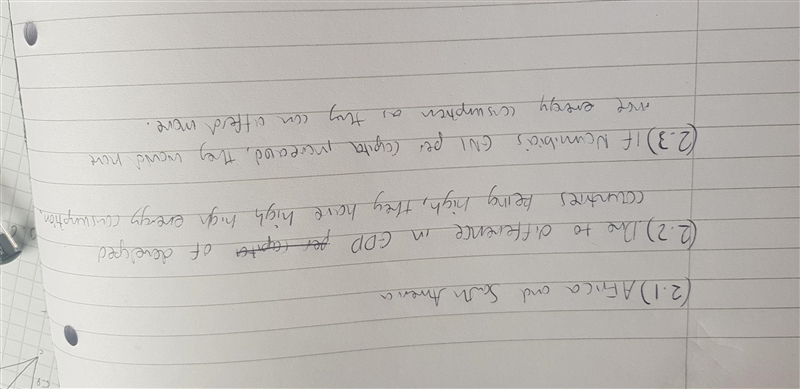 (2.1) Africa and South America
(2.2) Due to difference in GDP per capita of developed
countries being high, they have high energy consumption.
(2.3) If Namibia's GNI per capita increased, they would have
more energy consumption as they can afford more.